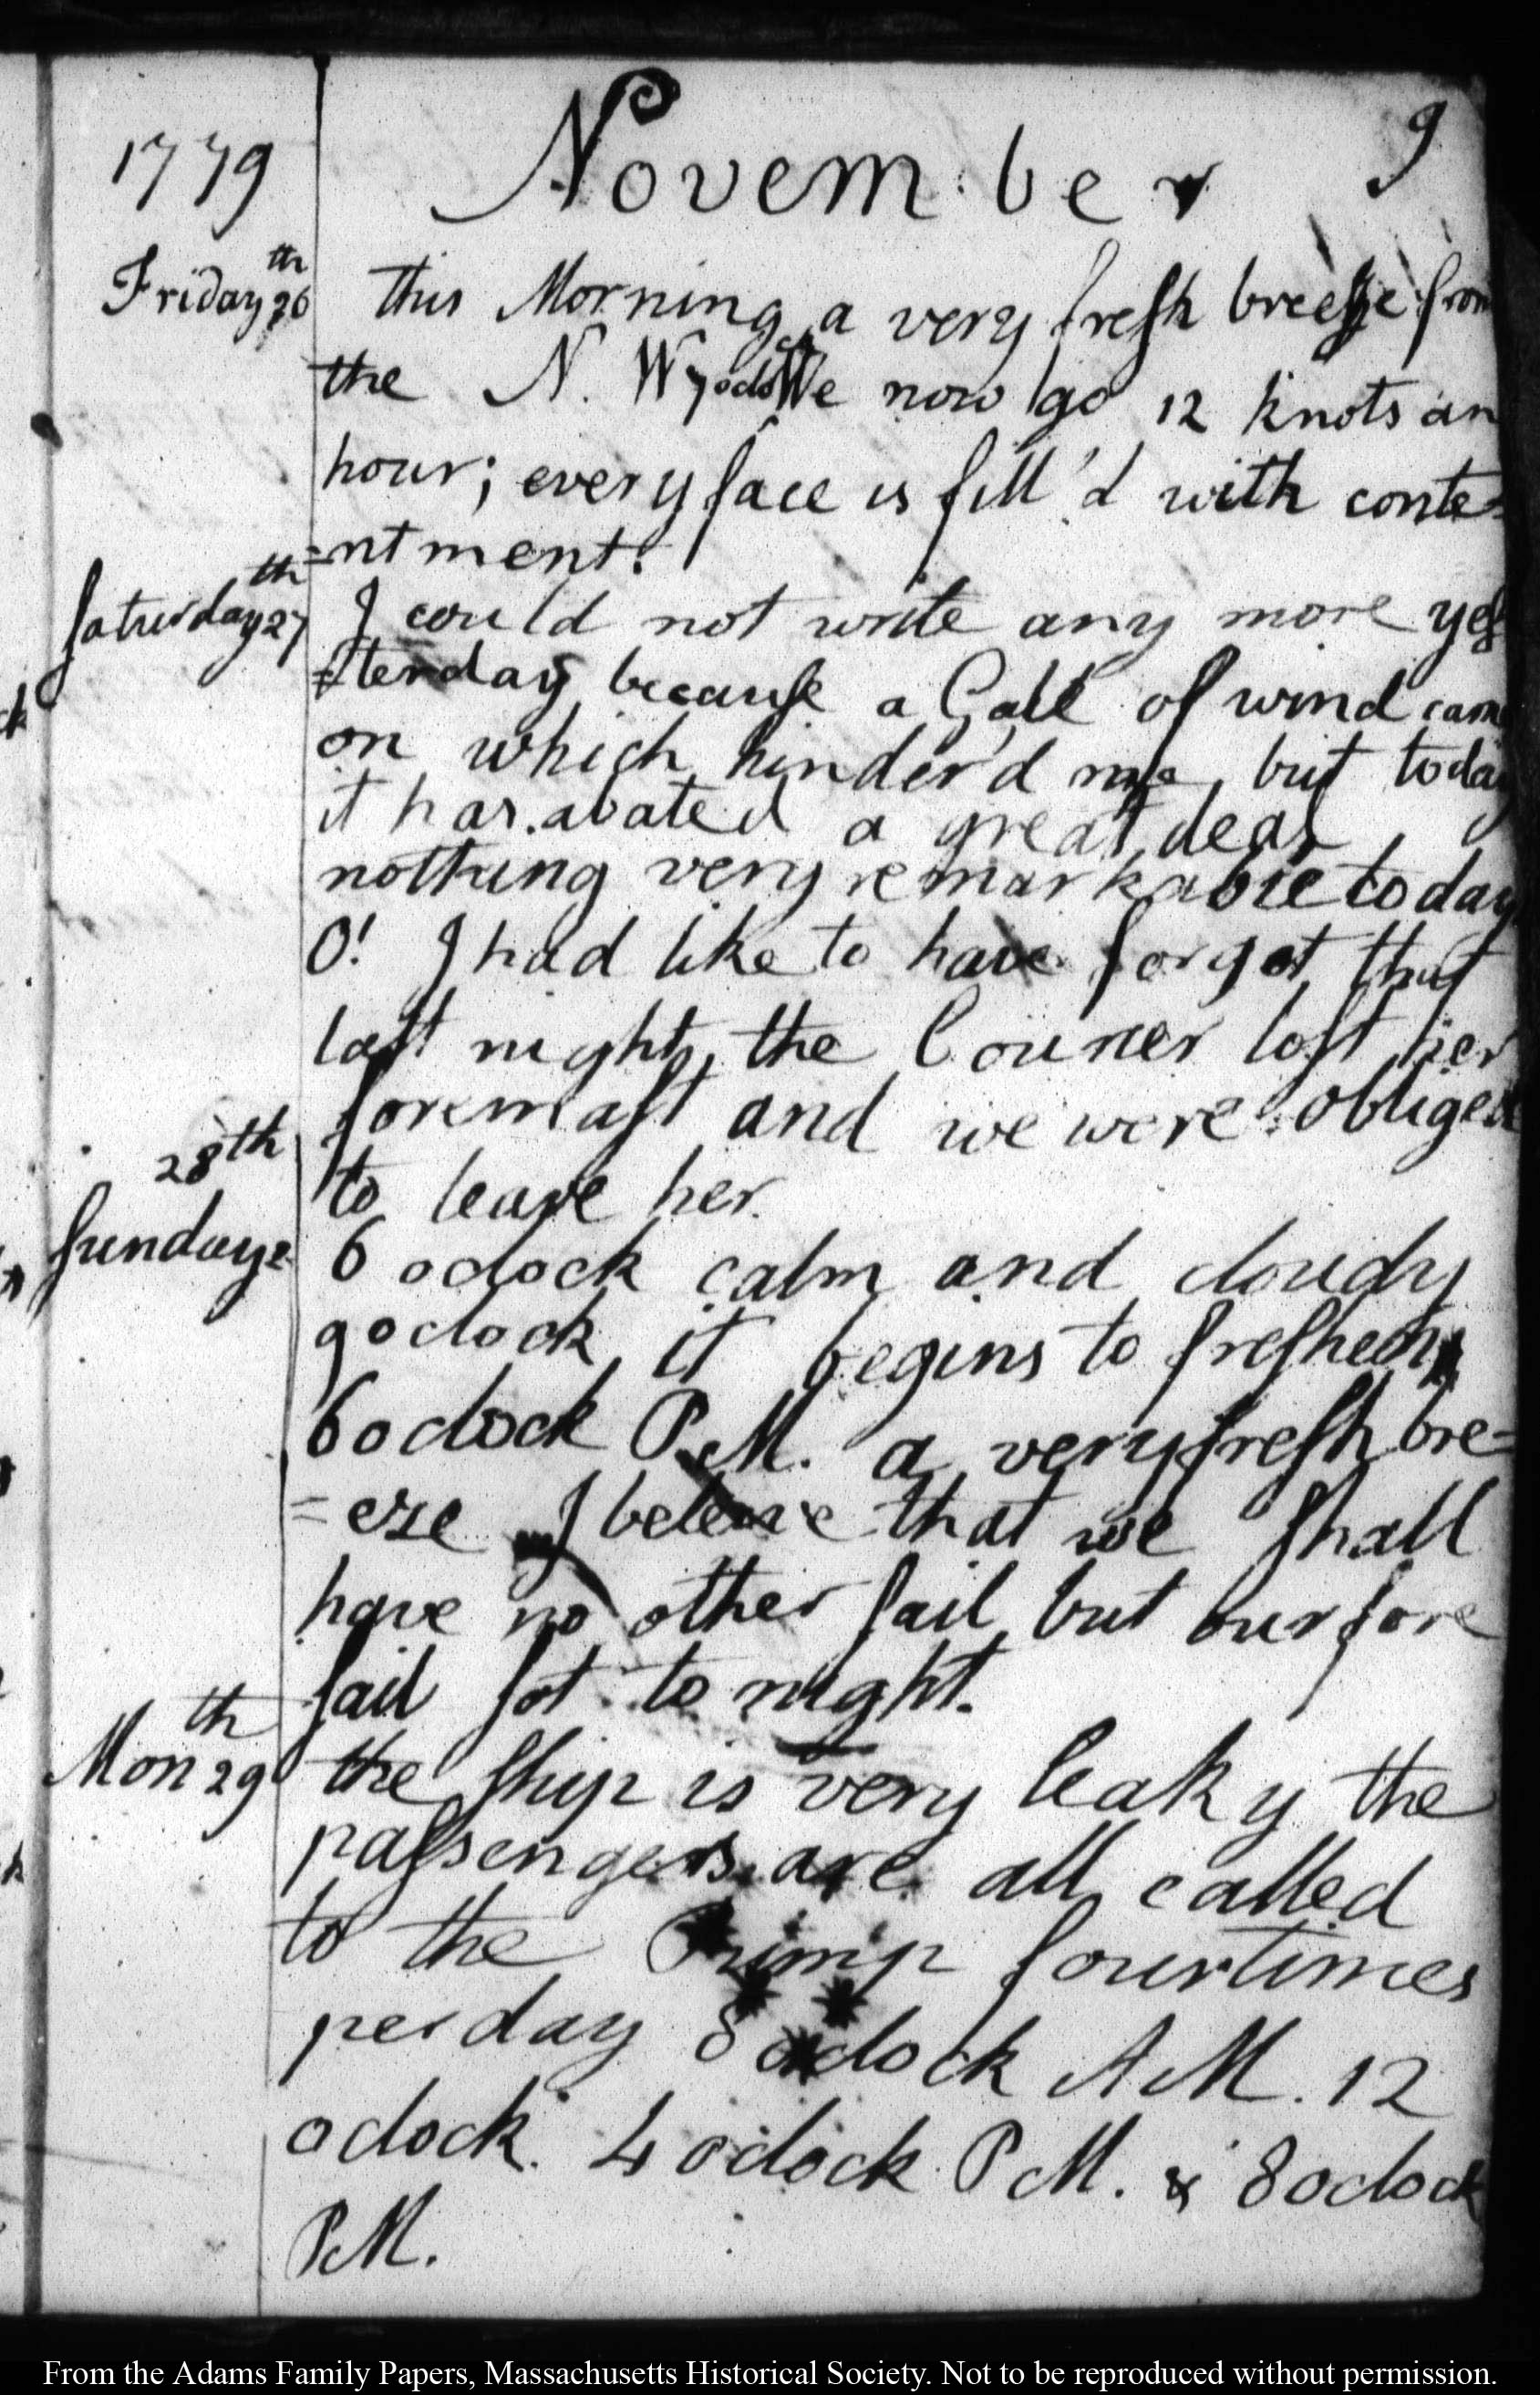 1779 November 9
Friday 26th this Morning a very fresh breeze from
the N. W. we now go 12 knots an
hour; every face is fill'd with conte=
=ntment.
Saturday 27th I could not write any more yes
=terday because a Gale of wind came
on which hinder'd me, but today
it has abated a great deal
nothing very remarkable today
O! I had like to have forgot that
last night the Courier lost her
foremast and we were obliged
to leave her.
28th
Sunday 6 oclock calm and cloudy
9 oclock it begins to freshen
6 oclock P.M. a very fresh bre=
=eze I beleive that we shall
have no other sail but our fore
sail sot to night.
Mon 29th the ship is very leaky the
passengers are all called
to the Pump four times
per day 8 oclock AM. 12
oclock. 4 oclock PM. & 8 oclock
PM.
From the Adams Family Papers, Massachusetts Historical Society. Not to be reproduced without permission.